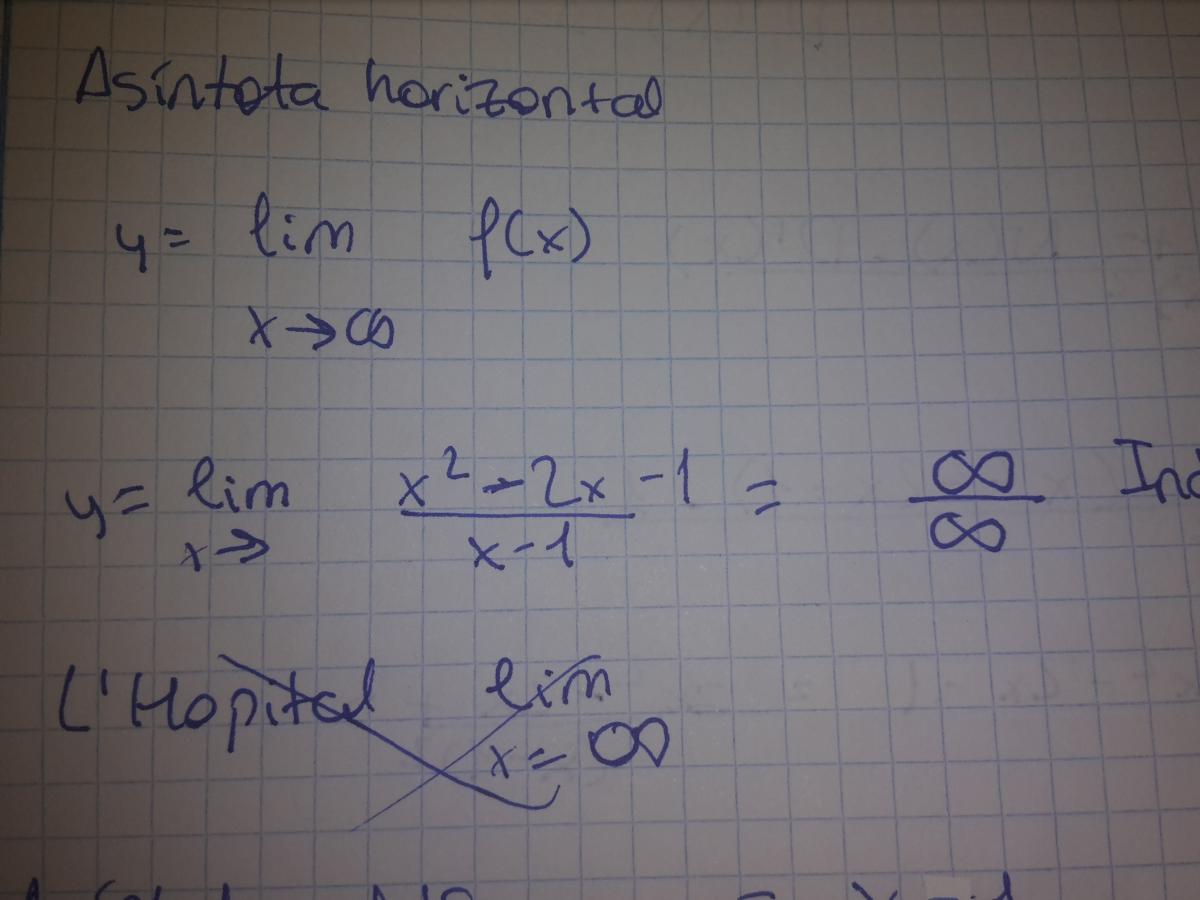 Asíntota horizontal
y = lim f(x)
x → ∞
y = lim x² - 2x - 1 = ∞ Ind
x → x - 1 ∞
L'Hopital lim
x = ∞